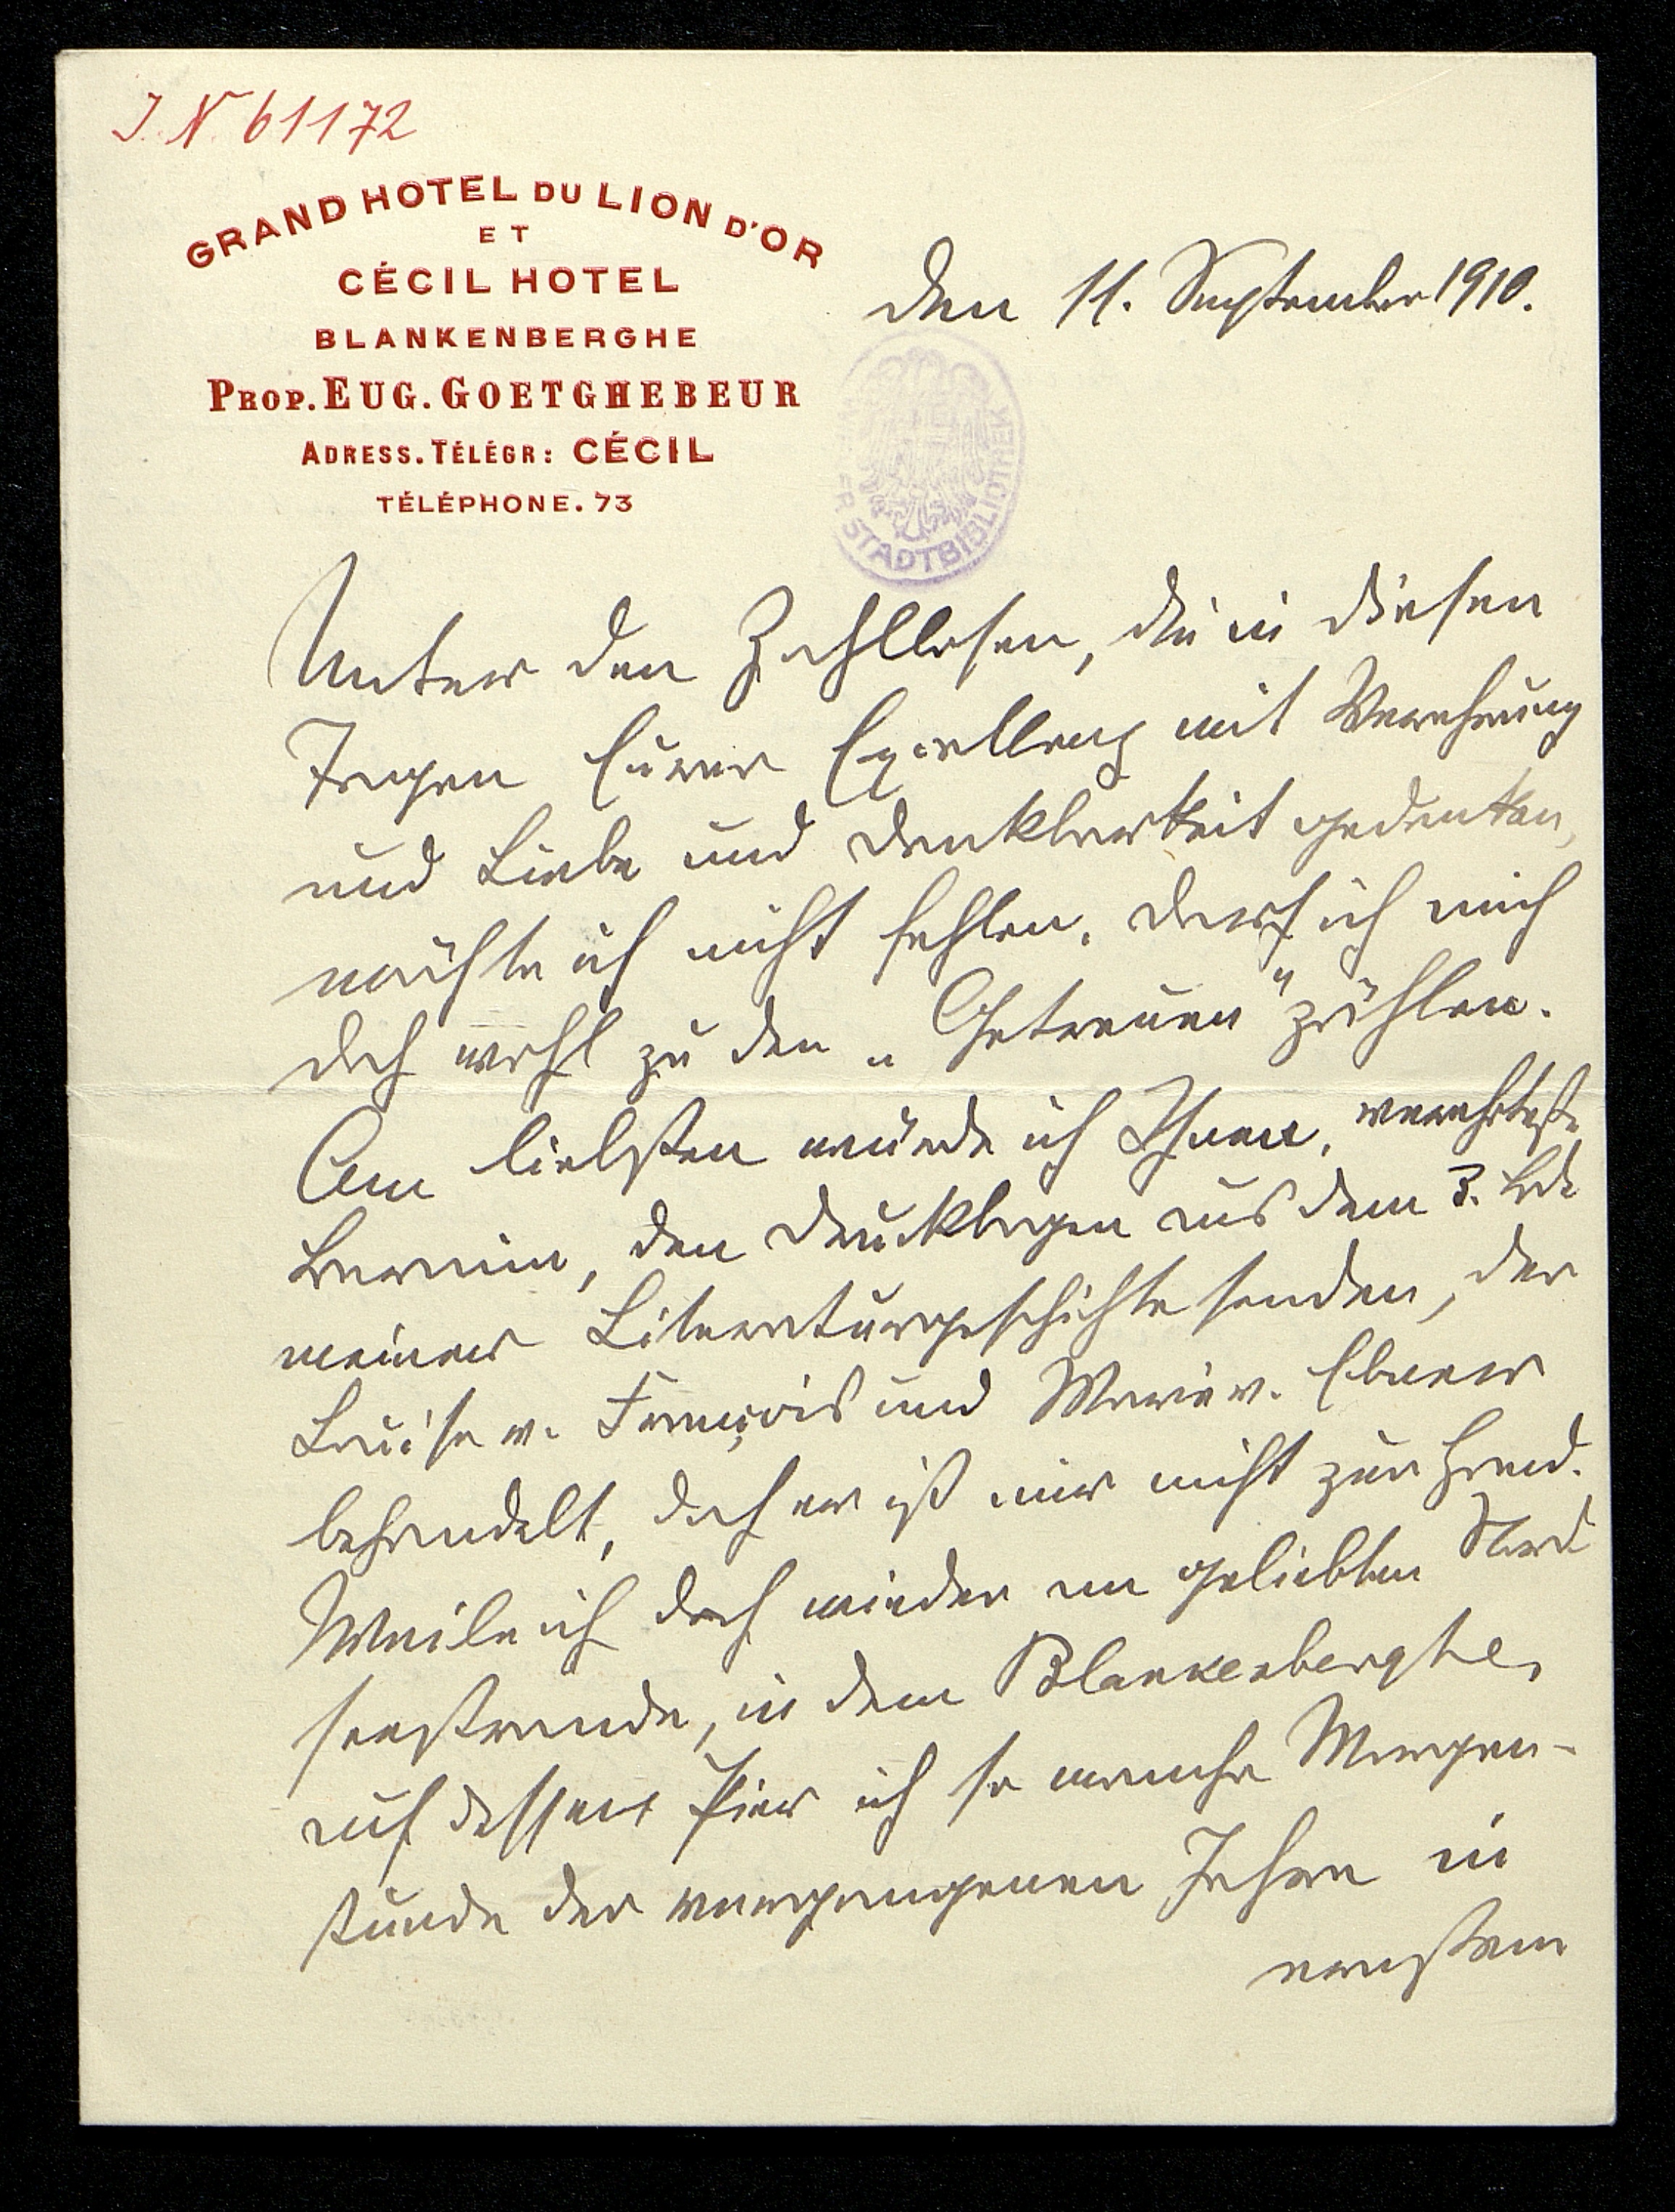 J. N. 61172
GRAND HOTEL DU LION D'OR
ET
CÉCIL HOTEL
BLANKENBERGHE
PROP. EUG. GOETGHEBEUR
ADRESS. TÉLÉGR: CÉCIL
TÉLÉPHONE. 73
den 11. September 1910.
ER STADTBIBLIOTHEK
Unter den Zahllosen, die in diesen
Tagen Eurer Excellenz mit Verehrung
und Liebe und Dankbarkeit gedenken,
möchte ich nicht fehlen. Darf ich mich
doch wohl zu den „Getreuen" zählen.
Am liebsten würde ich Ihnen, verehrteste
Baronin, den Druckbogen aus dem 3. Bde
meiner Literaturgeschichte senden, der
Louise v. François und Marie v. Ebner
behandelt, doch er ist mir nicht zur Hand.
Weile ich doch wieder am geliebten Nord
seestrande, in dem Blankenberghe,
auf dessen Pier ich so manche Morgen-
stunde der vergangenen Jahre in
ernstem